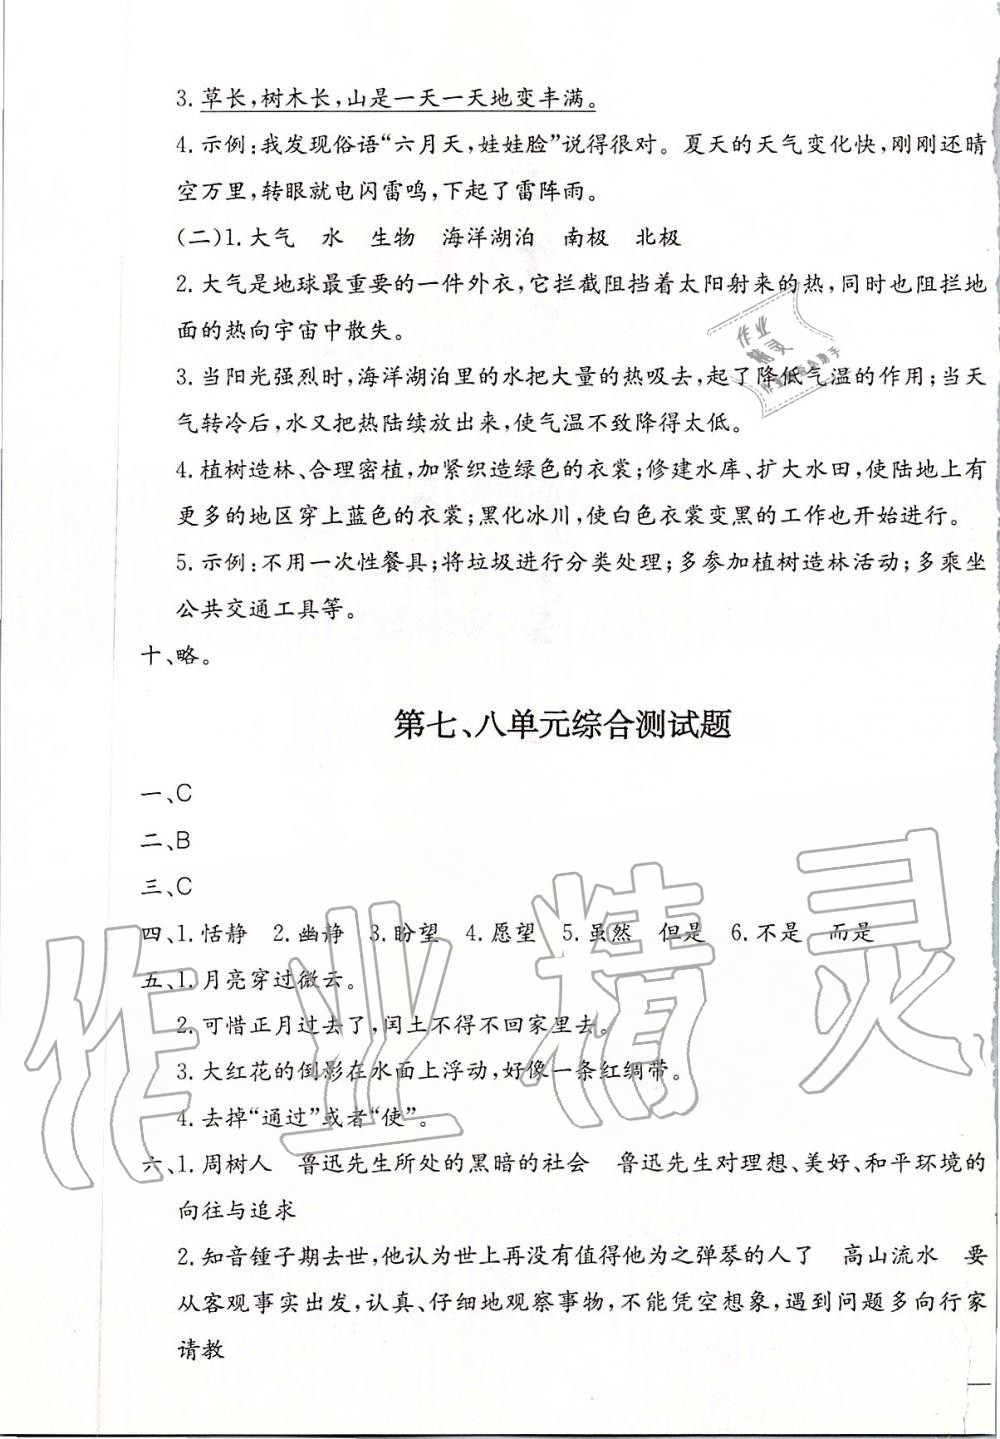 3.草长,树木长,山是一天一天地变丰满。
4.示例:我发现俗语“六月天,娃娃脸”说得很对。夏天的天气变化快,刚刚还晴
空万里,转眼就电闪雷鸣,下起了雷阵雨。
(二)1.大气 水 生物 海洋湖泊 南极 北极
2.大气是地球最重要的一件外衣,它拦截阻挡着太阳射来的热,同时也阻拦地
面的热向宇宙中散失。
3.当阳光强烈时,海洋湖泊里的水把大量的热吸去,起了降低气温的作用;当天
气转冷后,水又把热陆续放出来,使气温不致降得太低。
4.植树造林、合理密植,加紧织造绿色的衣裳;修建水库、扩大水田,使陆地上有
更多的地区穿上蓝色的衣裳;黑化冰川,使白色衣裳变黑的工作也开始进行。
5.示例:不用一次性餐具;将垃圾进行分类处理;多参加植树造林活动;多乘坐
公共交通工具等。
十、略。
第七、八单元综合测试题
一、C
二、B
三、C
四、1.恬静 2.幽静 3.盼望 4.愿望 5.虽然 但是 6.不是 而是
五、1.月亮穿过微云。
2.可惜正月过去了,闰土不得不回家里去。
3.大红花的倒影在水面上浮动,好像一条红绸带。
4.去掉“通过”或者“使”。
六、1.周树人 鲁迅先生所处的黑暗的社会 鲁迅先生对理想、美好、和平环境的
向往与追求
2.知音锺子期去世,他认为世上再没有值得他为之弹琴的人了 高山流水 要
从客观事实出发,认真、仔细地观察事物,不能凭空想象,遇到问题多向行家
请教
作业精灵
作业
精灵